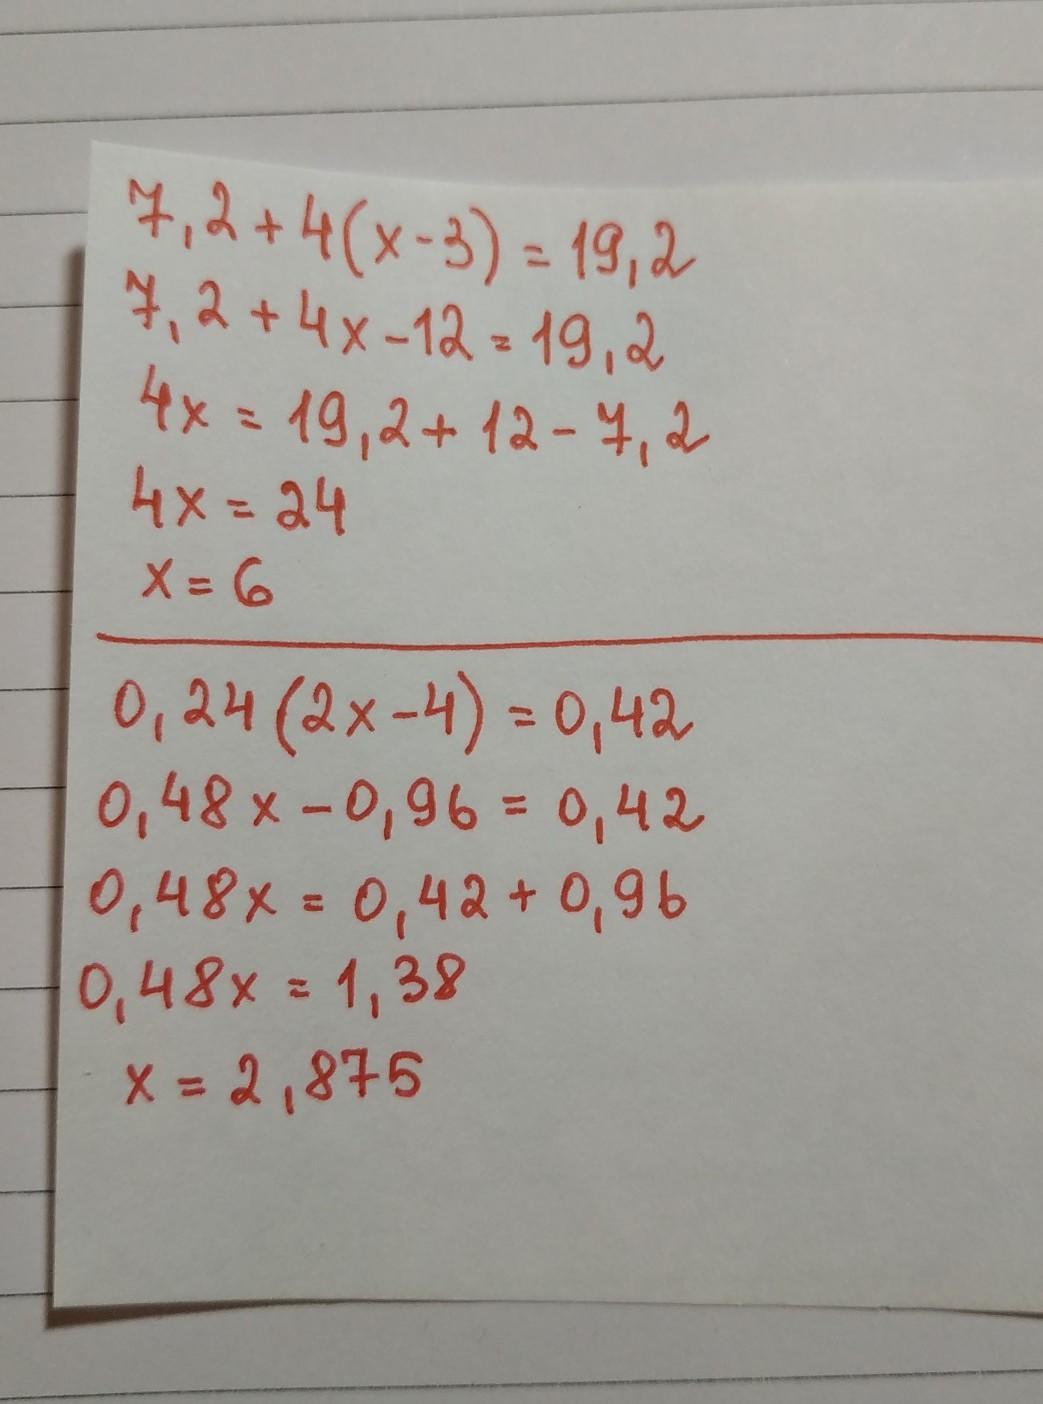 7,2+4(x-3)=19,2
7,2+4x-12=19,2
4x=19,2+12-7,2
4x=24
x=6
0,24(2x-4)=0,42
0,48x-0,96=0,42
0,48x=0,42+0,96
0,48x=1,38
x=2,875